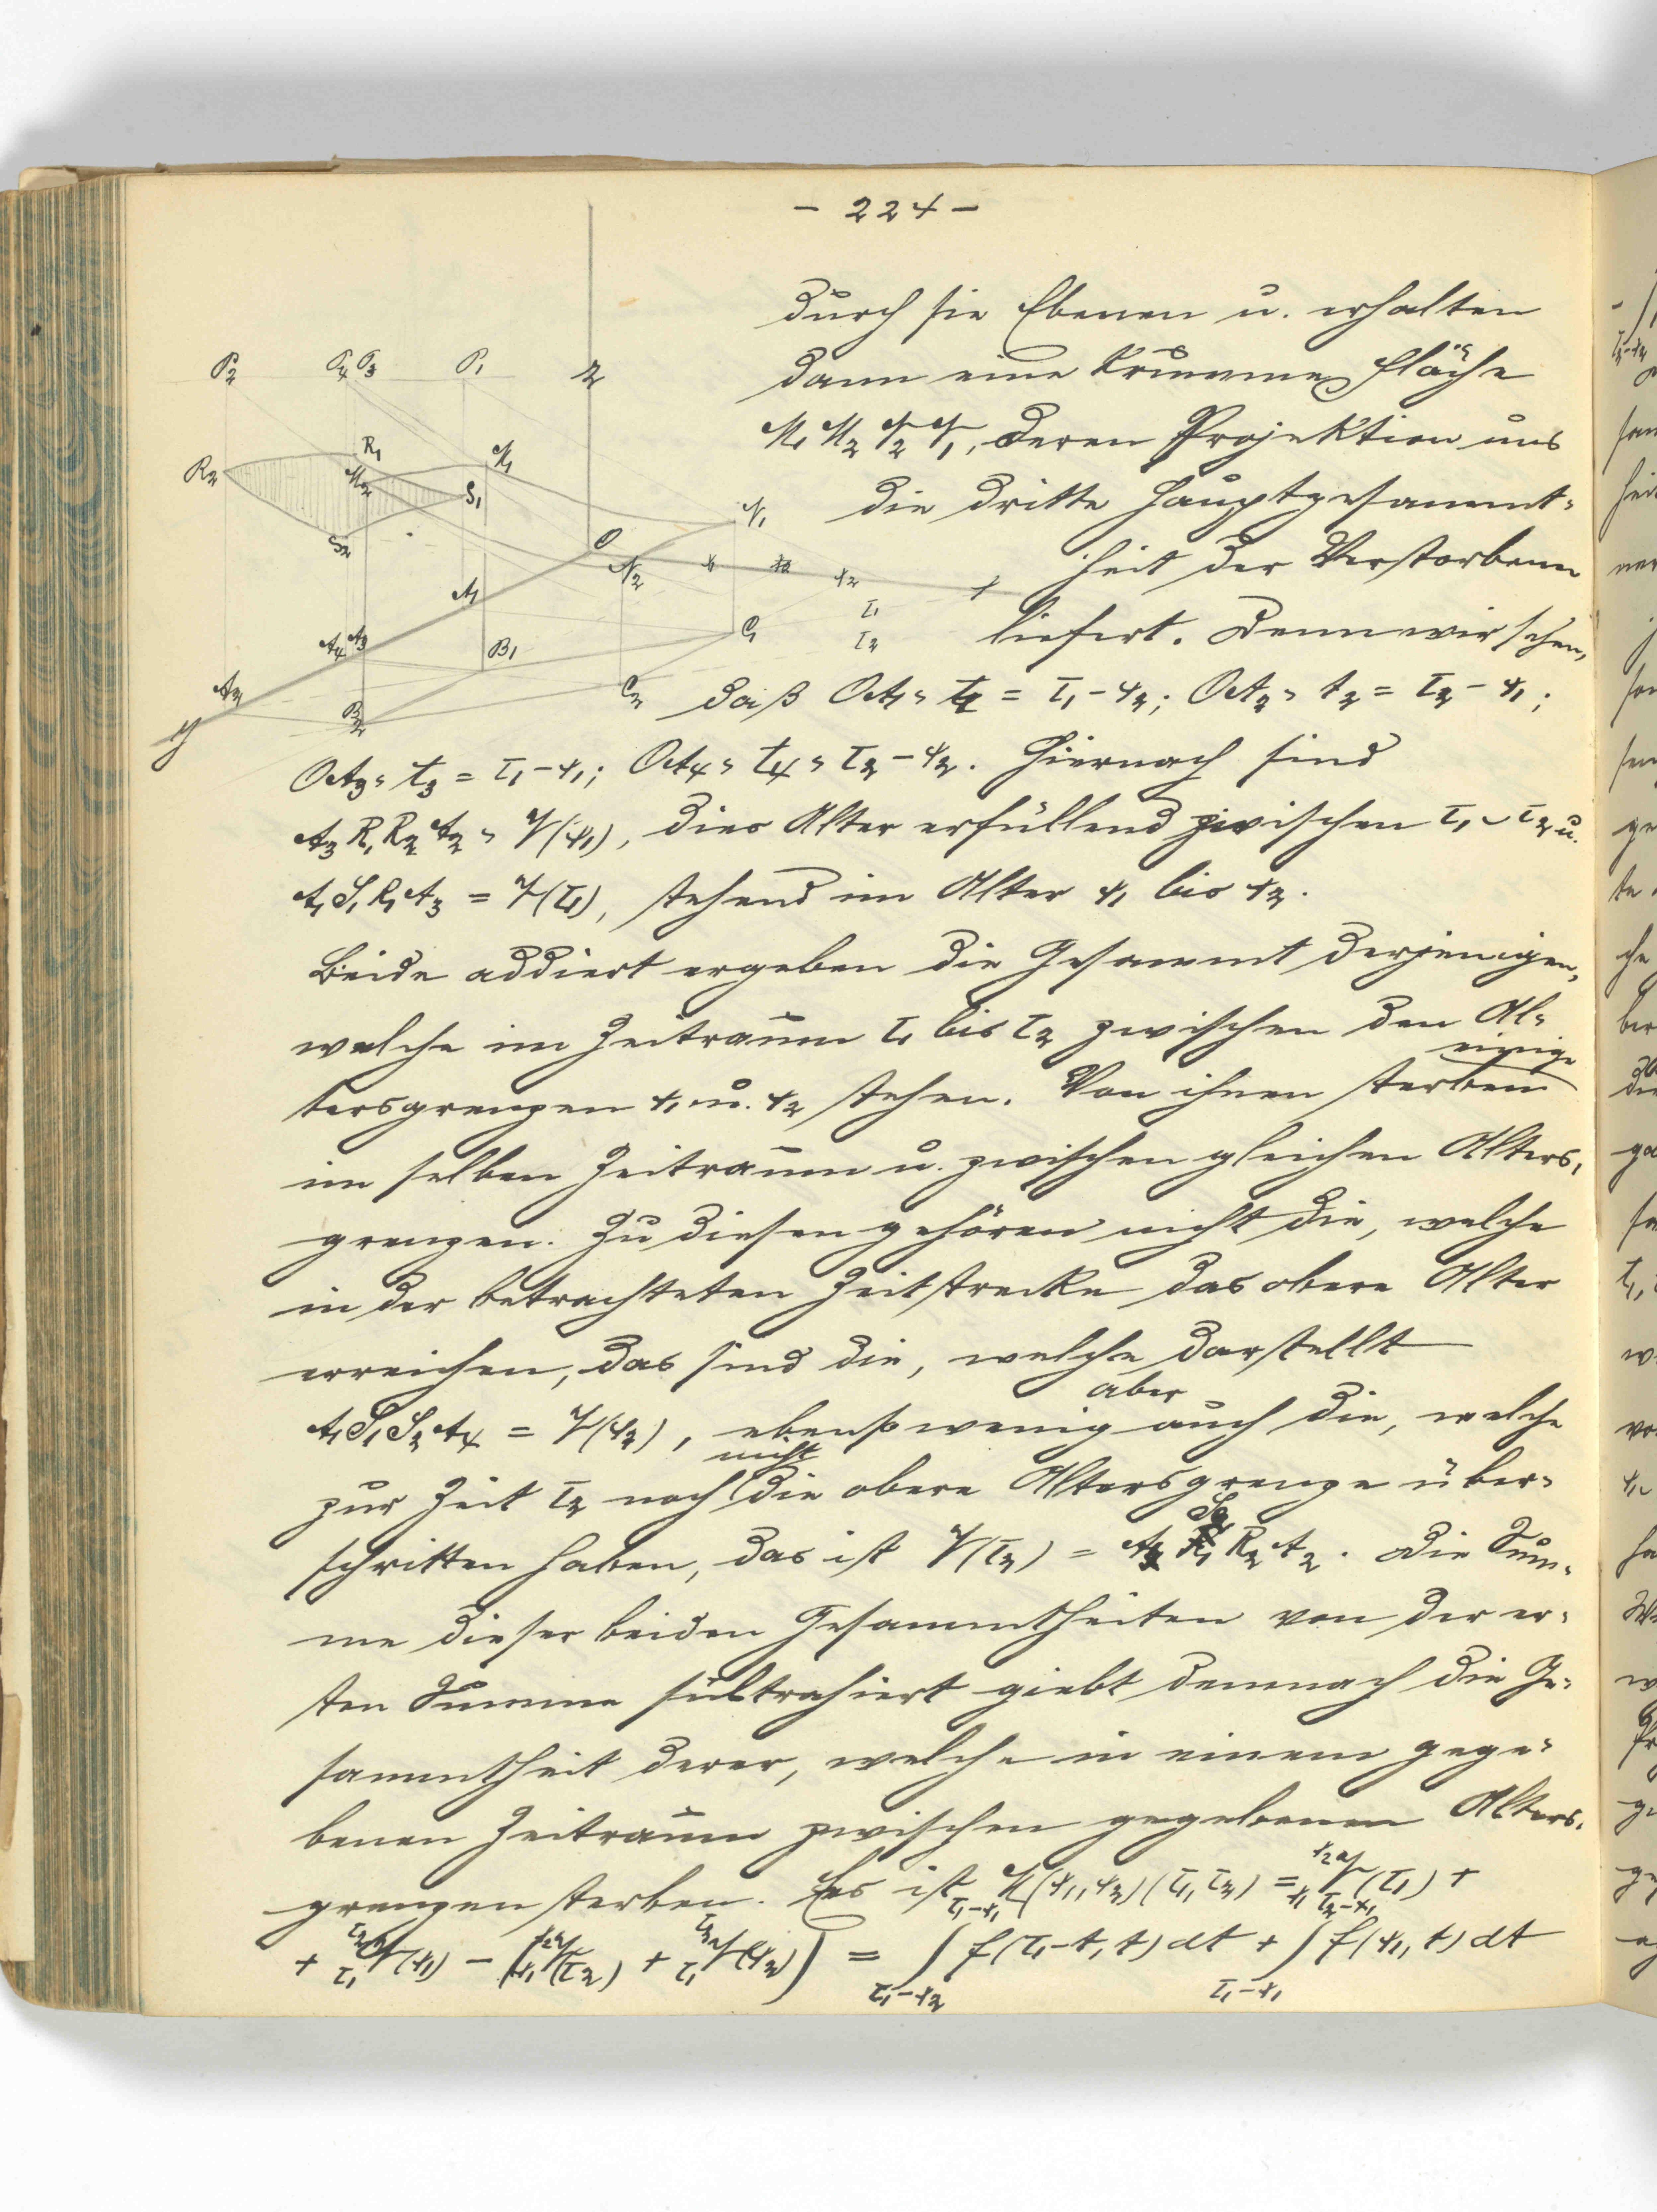 - 224 -
durch sie Ebenen u. erhalten
dann eine krumme Fläche
M₁ M₂ N₂ N₁, deren Projektion uns
die dritte Hauptgesammt-
heit der Verstorbenen
liefert. Denn wir sehen,
daß OA₁ = t₁ = τ₁ - x₂; OA₂ = t₂ = τ₂ - x₁;
OA₃ = t₃ = τ₁ - x₁; OA₄ = t₄ = τ₂ - x₂. Hiernach sind
A₃ R₁ R₂ A₂ = V(x₁), dies Alter erfüllend zwischen τ₁ – τ₂ u.
A₁ S₁ R₁ A₃ = V(τ₁), stehend im Alter x₁ bis x₂.
Beide addiert ergeben die Gesammt derjenigen,
welche im Zeitraum τ₁ bis τ₂ zwischen den Al-
tersgrenzen x₁ u. x₂ stehen. Von ihnen sterben einige
im selben Zeitraum u. zwischen gleichen Alters-
grenzen. Zu diesen gehören nicht die, welche
in der betrachteten Zeitstrecke das obere Alter
erreichen, das sind die, welche darstellt
A₁ S₁ S₂ A₄ = V(x₂), ebenso wenig aber auch die, welche
zur Zeit τ₂ noch nicht die obere Altersgrenze über-
schritten haben, das ist V(τ₂) = A₄ S₂ R₂ A₂. Die Sum-
me dieser beiden Gesammtheiten von der er-
sten Summe subtrahiert giebt demnach die Ge-
sammtheit derer, welche in einem gege-
benen Zeitraum zwischen gegebenen Alters-
grenzen sterben. Es ist M(x₁,x₂)(τ₁,τ₂) = V(τ₁) +
+ V(x₁) - (V(τ₂) + V(x₂)) = ∫ f(τ₁-t, t) dt + ∫ f(x₁, t) dt
P₂ P₄ P₃ P₁ z
R₂ R₁ M₂ M₁ S₁ S₂ N₁ N₂
O x₁ x₂ x
τ₁
τ₂
A₁ A₄ A₃ A₂ B₁ B₂ C₁ C₂ y